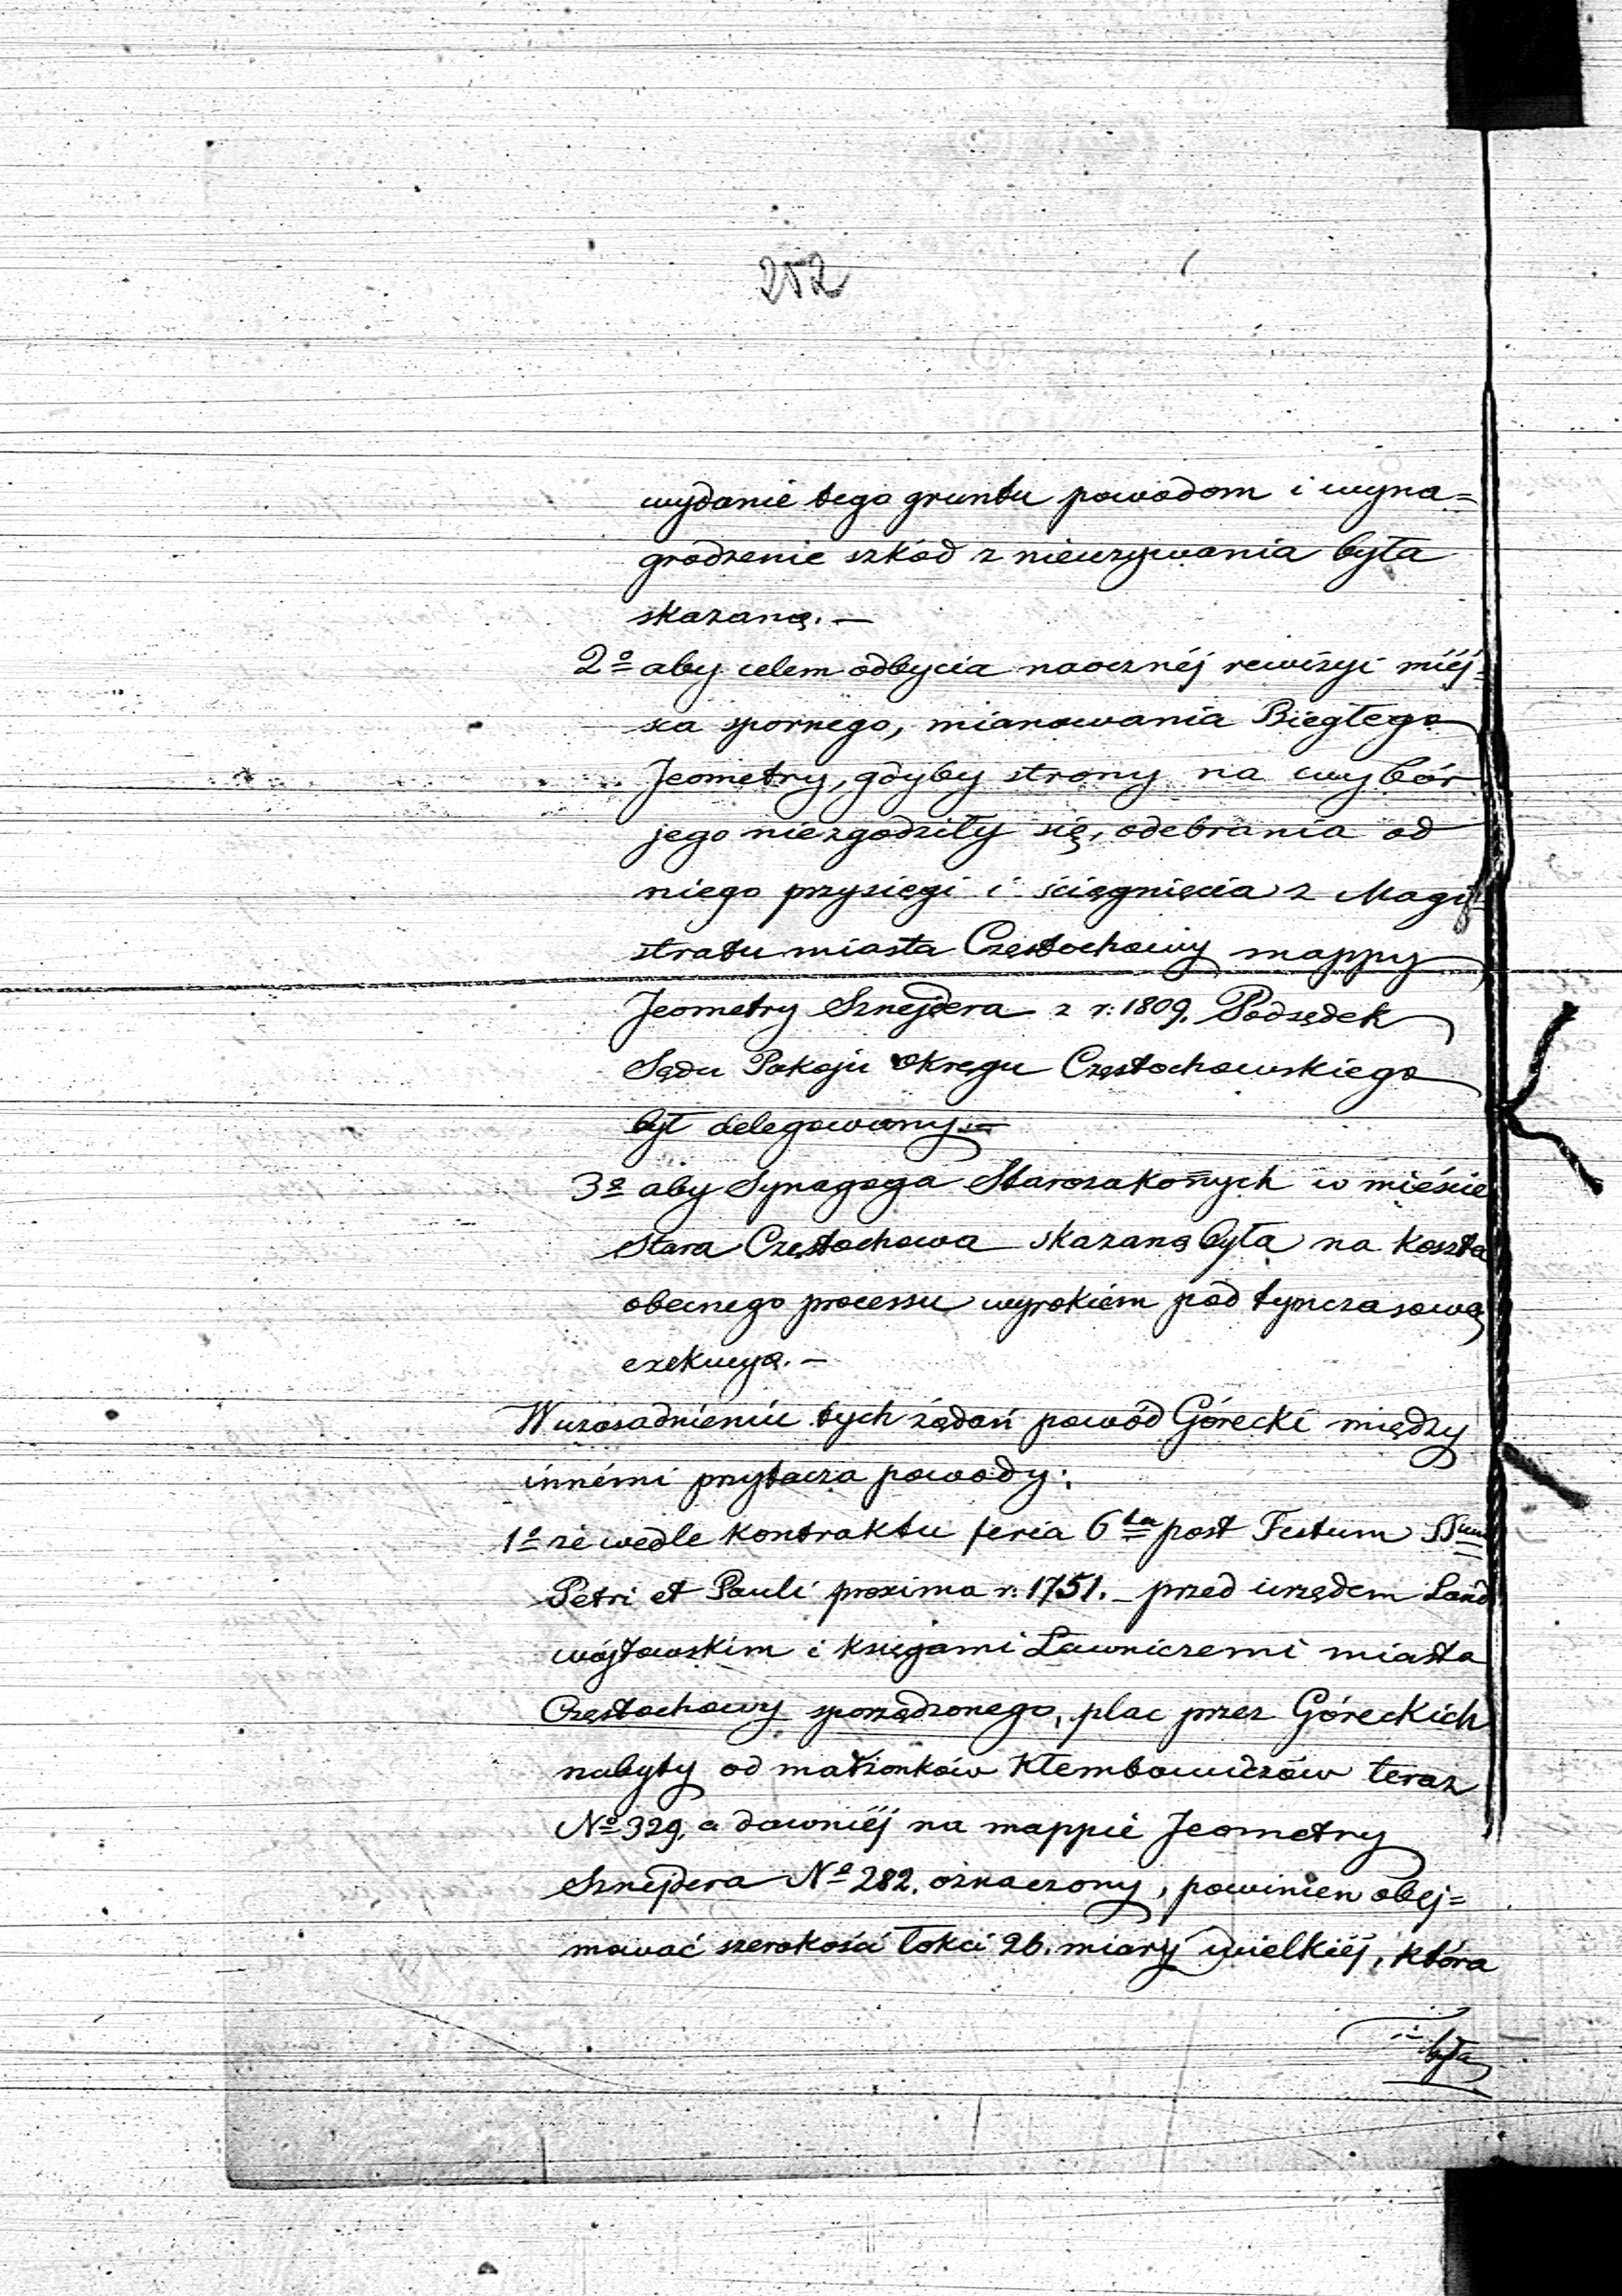 252
wydanie tego gruntu powodom i wyna=
grodzenie szkód z nieużywania była
skazaną. —
2º aby celem odbycia naocznéj rewizyi miéj=
sca spornego, mianowania Biegłego
Jeometry, gdyby strony na wybór
jego niezgodziły się, odebrania od
niego przysięgi i ściągnięcia z Magi=
stratu miasta Częstochowy mappy
Jeometry Sznejdera z r: 1809. Podsędek
Sądu Pokoju Okręgu Częstochowskiego
był delegowany. —
3º aby Synagoga Starozakoñych w mieście
Stara Częstochowa skazaną była na koszta
obecnego processu wyrokiem pod tymczasową
exekucyą. —
W uzasadnieniu tych żądań powód Górecki między
innémi przytacza powody:
1º że wedle kontraktu feria 6ta post Festum SSum
Petri et Pauli proxima r: 1751. — przed urzędem Land
wójtowskim i księgami Ławniczemi miasta
Częstochowy sporządzonego, plac przez Góreckich
nabyty od małżonków Kłembowiczów teraz
Nº 329. a dawniéj na mappie Jeometry
Sznejdera Nº 282. oznaczony, powinien obej=
mować szerokości łokci 26. miary wielkiéj, która
była